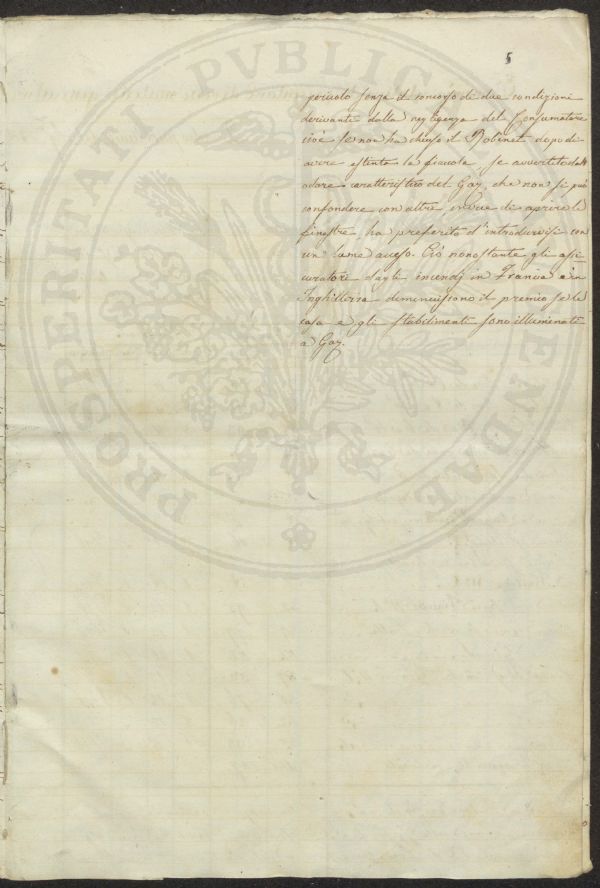 5
pericolo senza il concorso di due condizioni
derivanti dalla negligenza del Consumatore
cioè se non ha chiuso il Robinet dopo di
avere estinta la fiaccola, se avvertito dall'
odore caratteristico del Gaz, che non si può
confondere con altri invece di aprire le
finestre ha preferito d'introdursi con
un lume acceso. Ciò nonostante gli assi
curatori dagli incendj in Francia e in
Inghilterra diminuiscono il premio se le
casa e gli stabilimenti sono illuminati
a Gaz.
PROSPERITATI PUBLICAE AUGENDAE